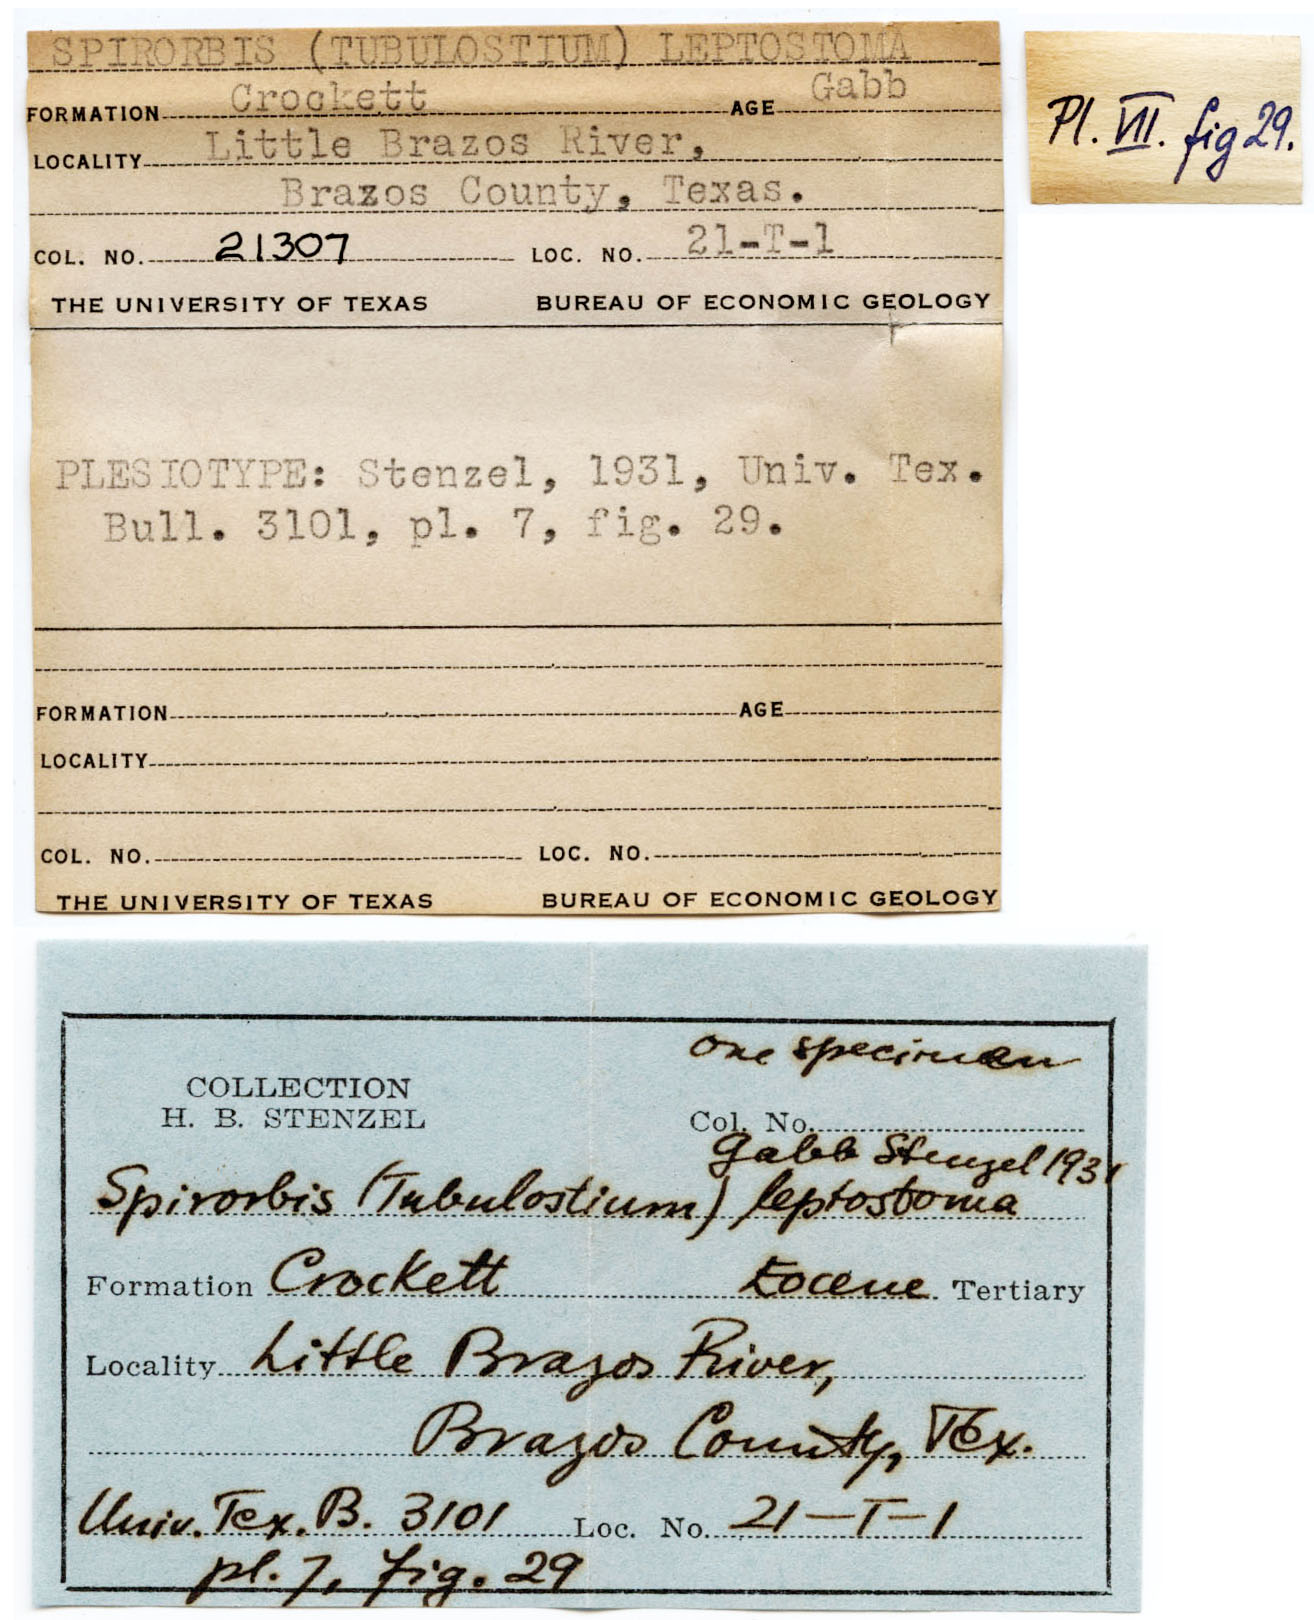 SPIRORBIS (TUBULOSTIUM) LEPTOSTOMA
Gabb
FORMATION Crockett AGE
LOCALITY Little Brazos River,
Brazos County, Texas.
COL. NO. 21307 LOC. NO. 21-T-1
THE UNIVERSITY OF TEXAS BUREAU OF ECONOMIC GEOLOGY
PLESIOTYPE: Stenzel, 1931, Univ. Tex.
Bull. 3101, pl. 7, fig. 29.
FORMATION AGE
LOCALITY
COL. NO. LOC. NO.
THE UNIVERSITY OF TEXAS BUREAU OF ECONOMIC GEOLOGY
Pl. VII. fig 29.
one specimen
COLLECTION
H. B. STENZEL
Col. No.
Gabb Stenzel 1931
Spirorbis (Tubulostium) leptostoma
Formation Crockett Eocene Tertiary
Locality Little Brazos River,
Brazos County, Tex.
Univ. Tex. B. 3101 Loc. No. 21-T-1
pl. 7, fig. 29